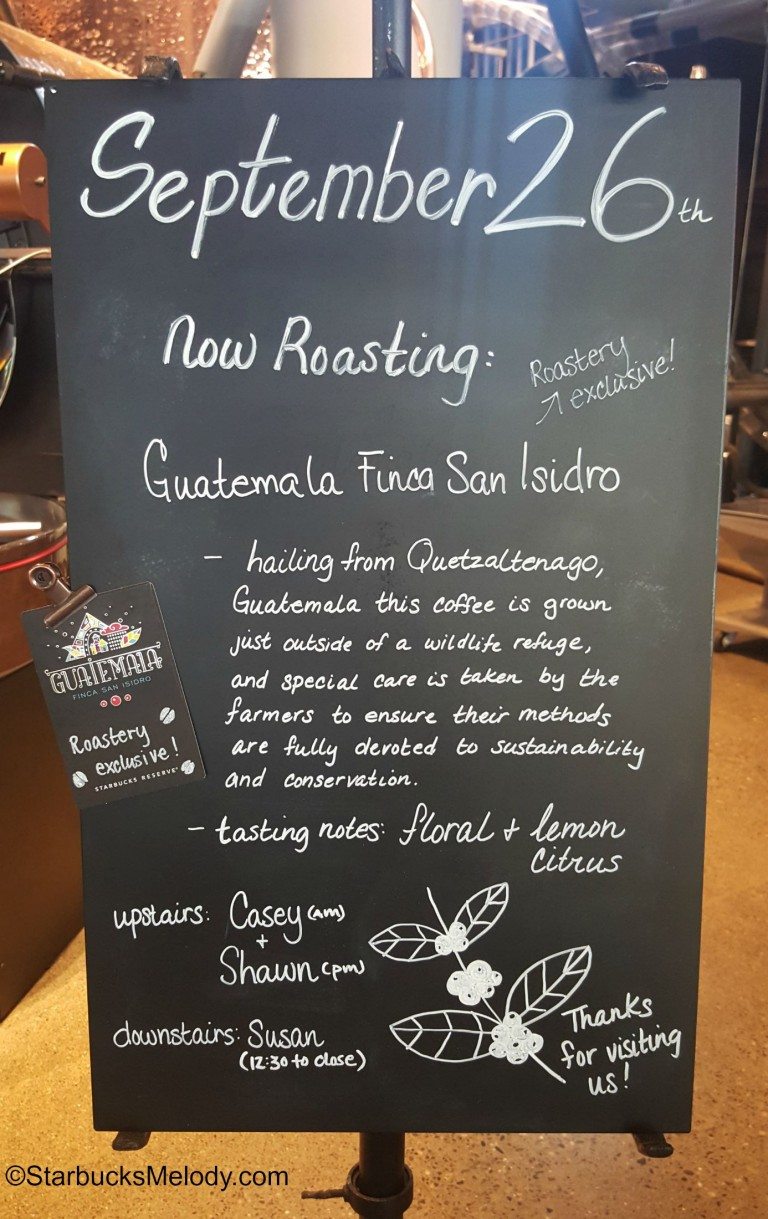 September 26th
Now Roasting:
Roastery
↗ exclusive!
Guatemala Finca San Isidro
- hailing from Quetzaltenago,
Guatemala this coffee is grown
just outside of a wildlife refuge,
and special care is taken by the
farmers to ensure their methods
are fully devoted to sustainability
and conservation.
GUATEMALA
FINCA SAN ISIDRO
Roastery
exclusive!
STARBUCKS RESERVE
- tasting notes: floral + lemon
citrus
upstairs: Casey (am)
+
Shawn (pm)
downstairs: Susan
(12:30 to close)
Thanks
for visiting
us!
©StarbucksMelody.com